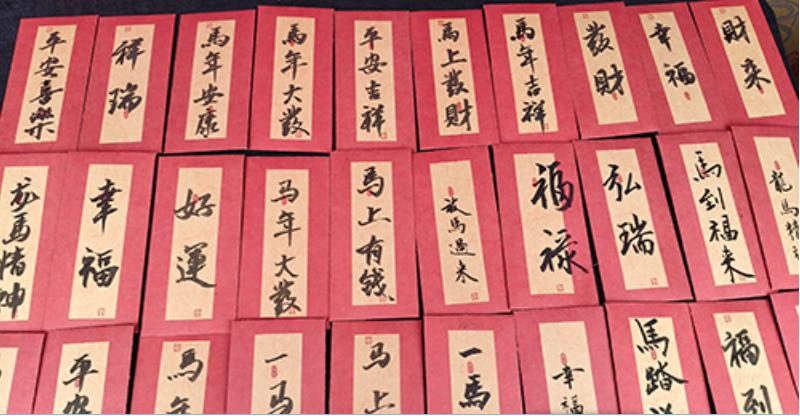 平安喜樂
祥瑞
馬年安康
馬年大發
平安吉祥
馬上發財
馬年吉祥
發財
幸福
財來
龙馬精神
幸福
好運
马年大發
馬上有钱
放馬過来
福禄
弘瑞
馬到福来
龍馬精神
平安
馬年
一马
马上
一馬
幸福
馬踏
福到